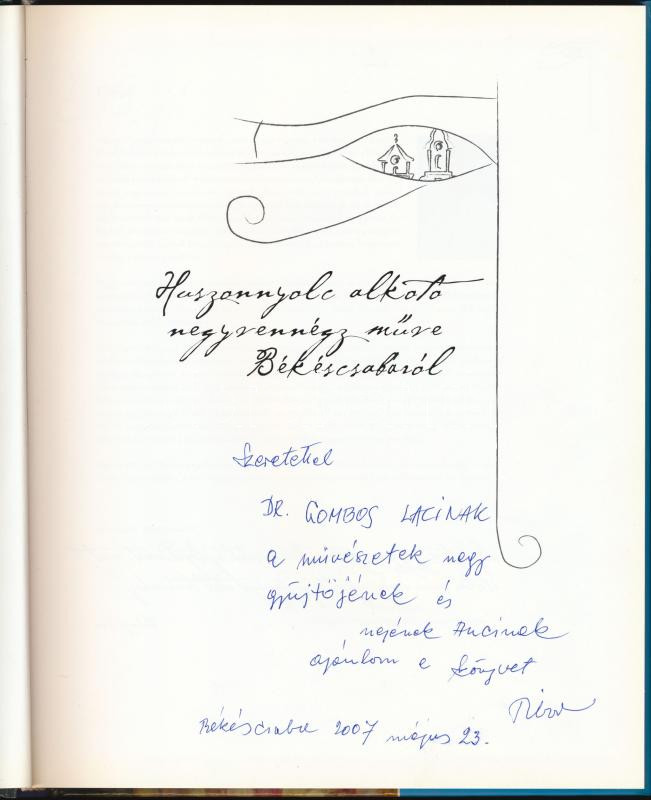 Huszonnyolc alkotó
negyvennégy műve
Békéscsabáról
Szeretettel
DR. GOMBOS LACINAK
a művészetek nagy
gyűjtőjének és
nejének Ancinak
ajánlom e könyvet
Tibor
Békéscsaba 2007 május 23.